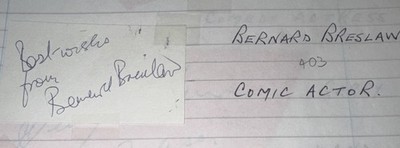 Best wishes
from
Bernard Breslaw
BERNARD BRESLAW
403
COMIC ACTOR.